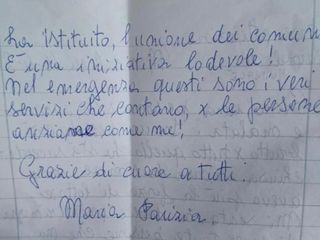 ha istituito, l'unione dei comuni
È una iniziativa lodevole!
nel emergenza questi sono i veri
servizi che contano, x le persone
anziane come me!
Grazie di cuore a tutti.
Maria Parizia